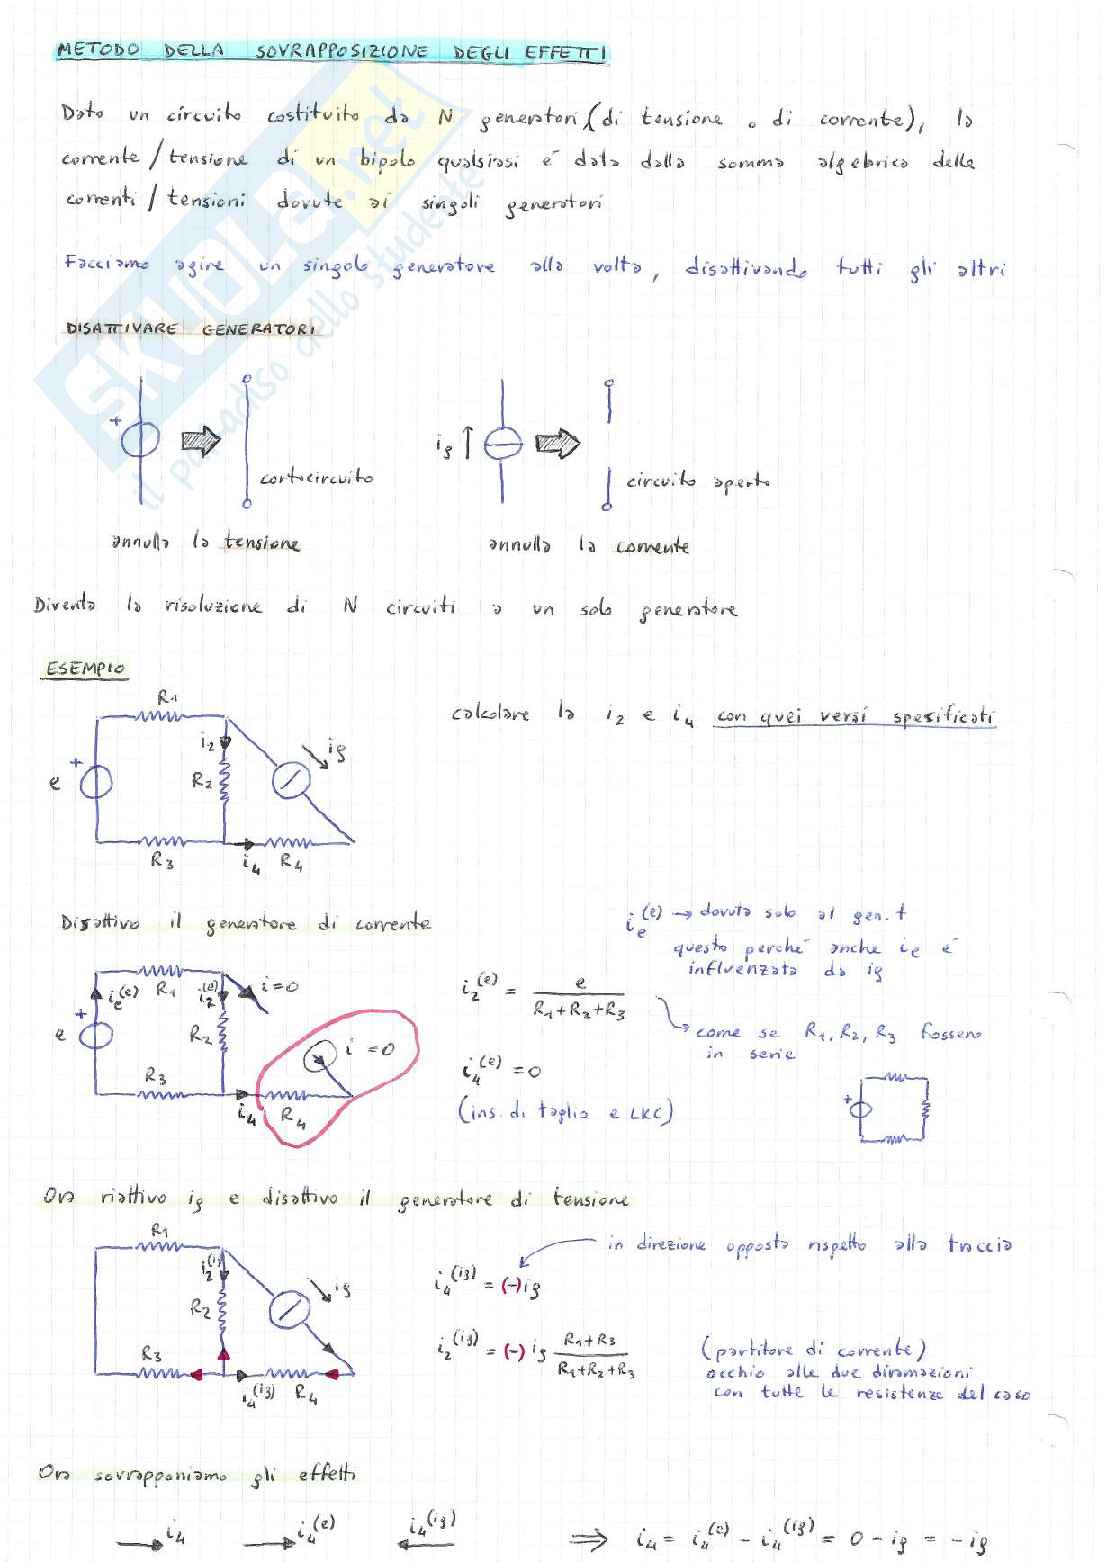 METODO DELLA SOVRAPPOSIZIONE DEGLI EFFETTI
Dato un circuito costituito da N generatori (di tensione o di corrente), la
corrente/tensione di un bipolo qualsiasi é data dalla somma algebrica delle
correnti/tensioni dovute ai singoli generatori
Facciamo agire un singolo generatore alla volta, disattivando tutti gli altri
DISATTIVARE GENERATORI
+
cortocircuito
ig
circuito aperto
annulla la tensione
annulla la corrente
Diventa la risoluzione di N circuiti a un solo generatore
ESEMPIO
calcolare la i2 e i4 con quei versi spesificati
R1
i2
ig
+
e
R2
R3
i4
R4
Disattivo il generatore di corrente
ie(e) → dovuta solo al gen. t
questo perché anche ie é
influenzata da ig
ie(e)
R1
i2(e)
i=0
+
e
R2
i=0
R3
i4
R4
i2(e) = e / (R1+R2+R3)
come se R1, R2, R3 fossero
in serie
i4(e) = 0
(ins. di taglio e LKC)
+
Ora riattivo ig e disattivo il generatore di tensione
R1
i2(i
ig
R2
R3
i4(ig)
R4
in direzione opposta rispetto alla traccia
i4(ig) = (-)ig
i2(ig) = (-) ig (R1+R3) / (R1+R2+R3)
(partitore di corrente)
occhio alle due diramazioni
con tutte le resistenze del caso
Ora sovrapponiamo gli effetti
→ i4 → i4(e) ← i4(ig) ⇒ i4 = i4(e) - i4(ig) = 0 - ig = -ig
SKUOLA.net
il paradiso dello studente